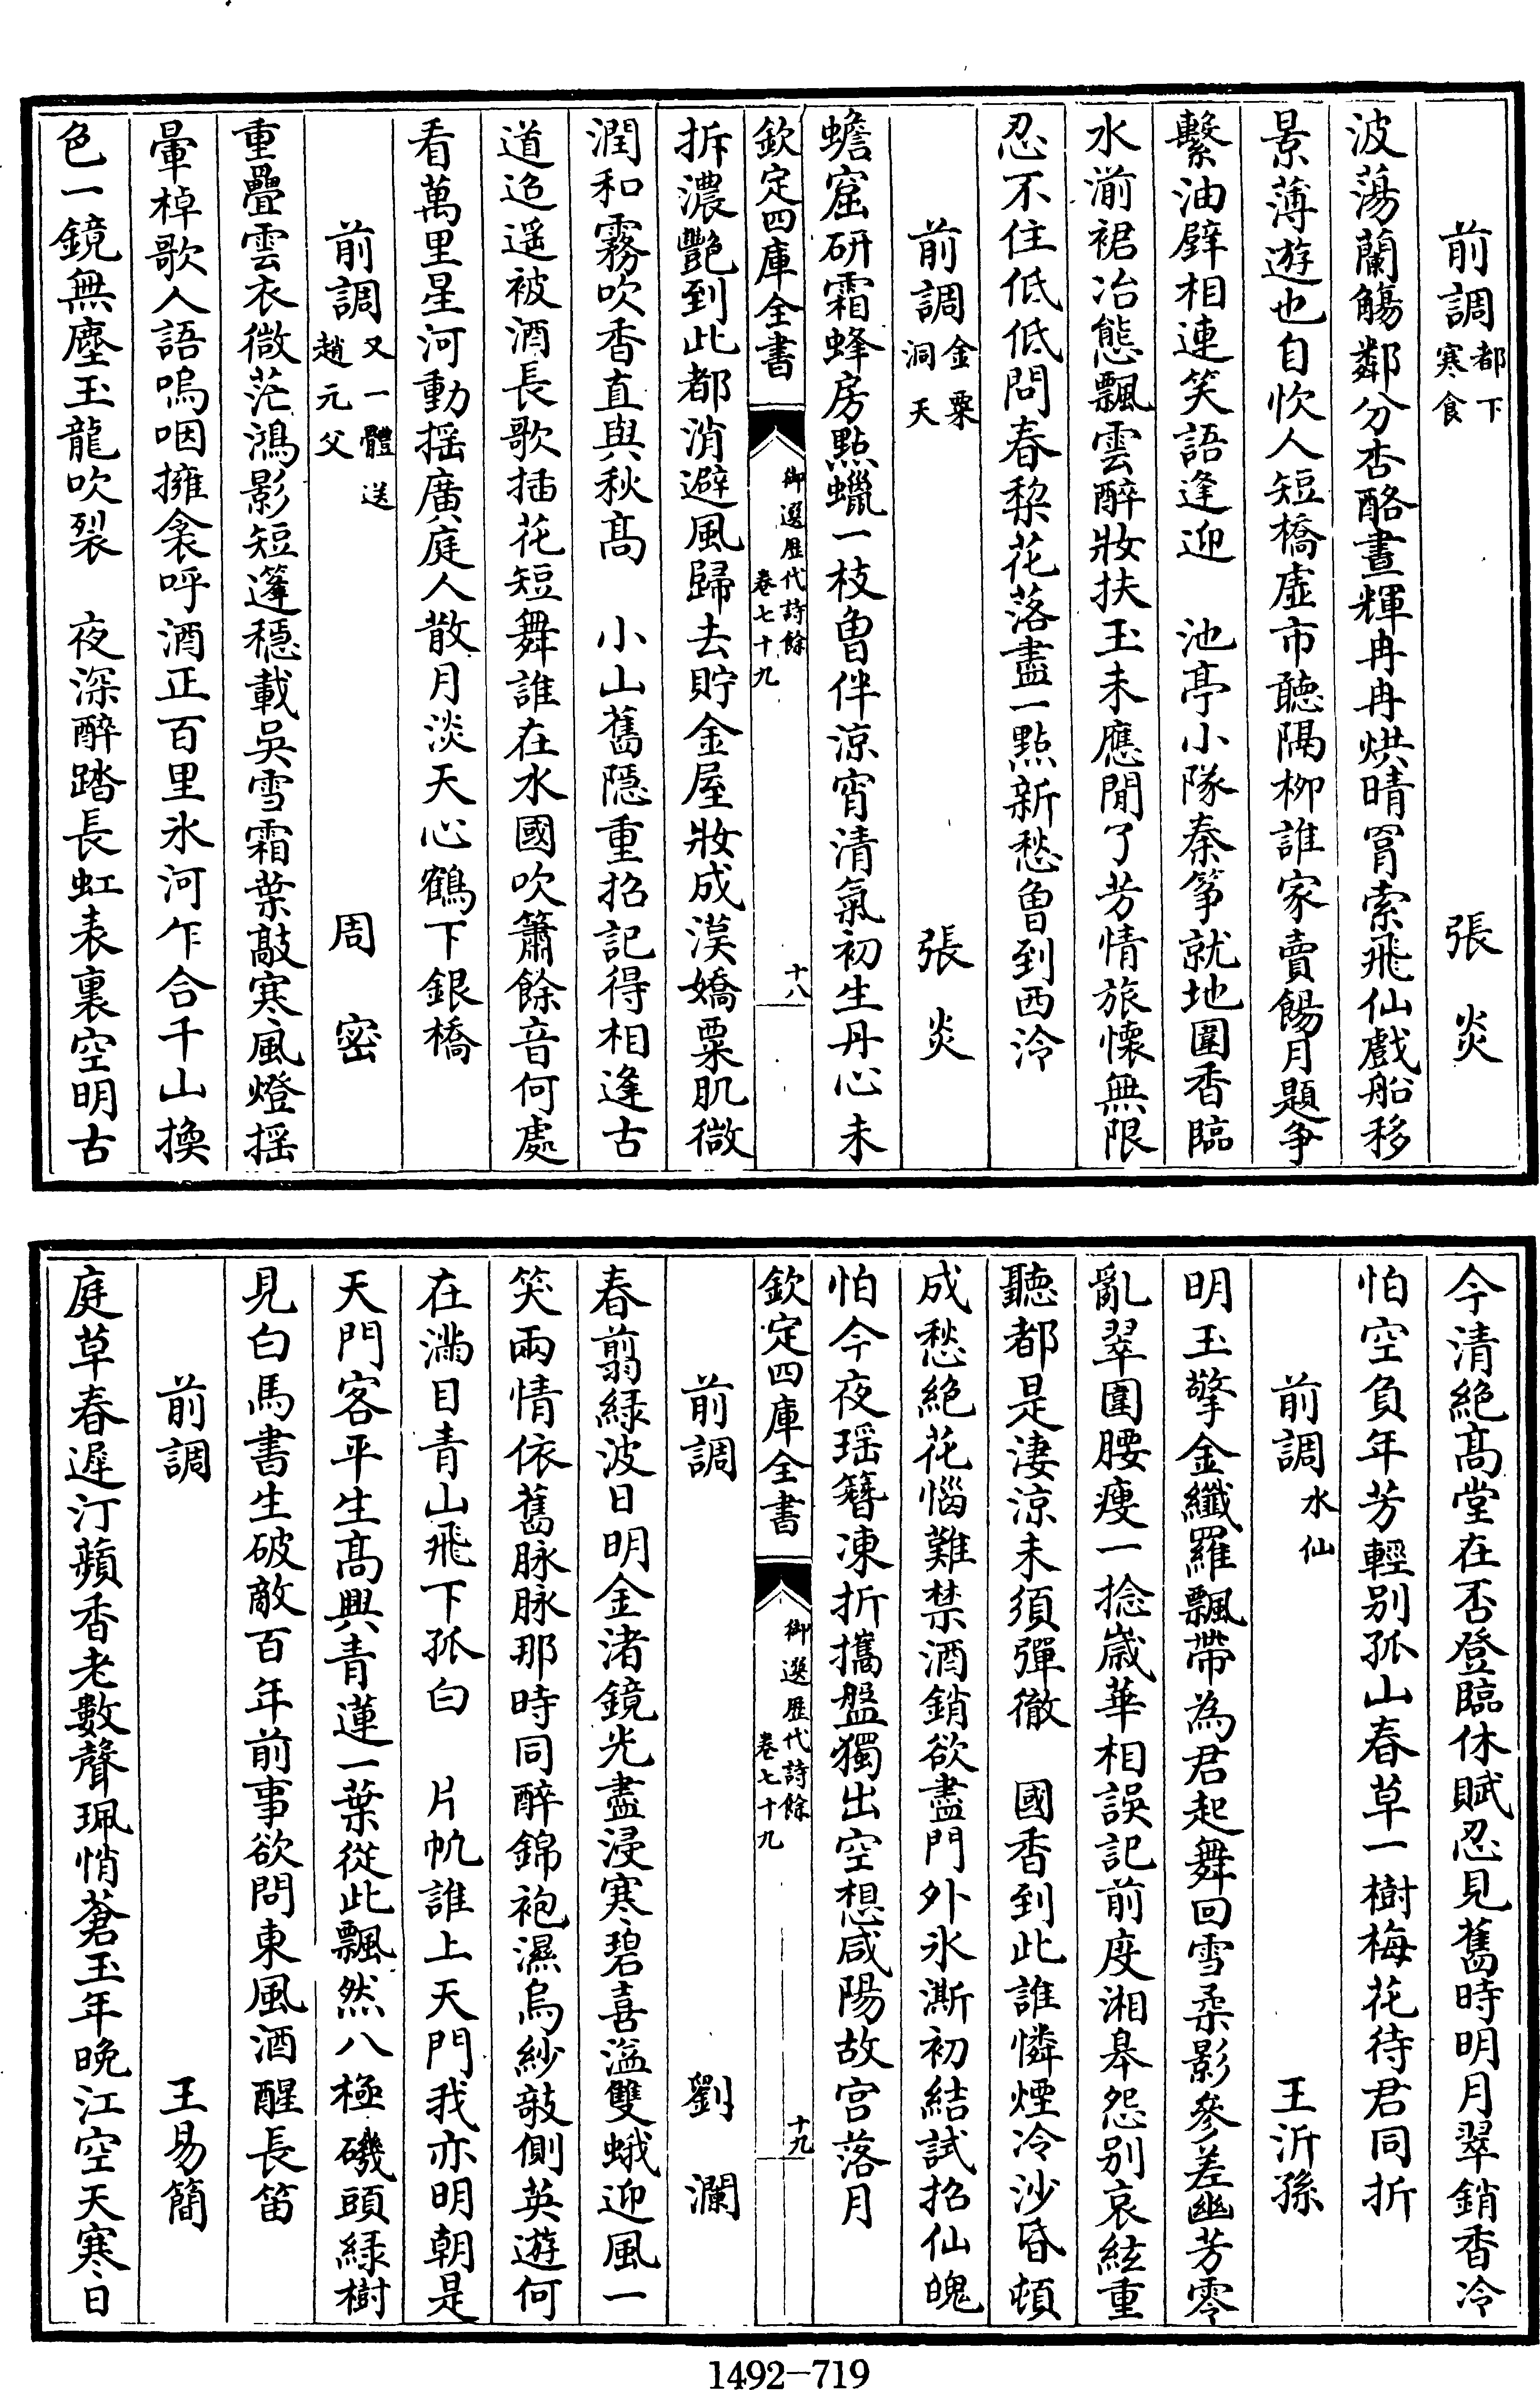 前調都下寒食　張炎
波蕩蘭觴鄰分杏酪晝輝冉冉烘晴罥索飛仙戲船移
景薄遊也自忺人短橋虛市聽隔柳誰家賣餳月題争
繫油壁相連笑語逢迎　池亭小隊秦筝就地圍香臨
水湔裙冶態飄雲醉妝扶玉未應閒了芳情旅懷無限
忍不住低低問春棃花落盡一點新愁曾到西泠
前調金粟洞天　張炎
蟾窟研霜蜂房點蠟一枝曾伴涼宵清氣初生丹心未
欽定四庫全書　御選歷代詩餘卷七十九　十八
拆濃艷到此都消避風歸去貯金屋妝成漢嬌粟肌微
潤和霧吹香直與秋髙　小山舊隱重招記得相逢古
道迢遥被酒長歌插花短舞誰在水國吹簫餘音何處
看萬里星河動摇廣庭人散月淡天心鶴下銀橋
前調又一體送趙元父　周密
重疊雲衣微茫鴻影短篷穩載吳雪霜葉敲寒風燈摇
暈棹歌人語嗚咽擁衾呼酒正百里氷河乍合千山換
色一鏡無塵玉龍吹裂　夜深醉踏長虹表裏空明古
今清絶髙堂在否登臨休賦忍見舊時明月翠銷香冷
怕空負年芳輕别孤山春草一樹梅花待君同折
前調水仙　王沂孫
明玉擎金纖羅飄帶為君起舞回雪柔影參差幽芳零
亂翠圍腰瘦一捻嵗華相誤記前度湘皋怨别哀絃重
聽都是淒涼未須彈徹　國香到此誰憐煙冷沙昏頓
成愁絶花惱難禁酒銷欲盡門外氷澌初結試招仙魄
怕今夜瑶簪凍折攜盤獨出空想咸陽故宫落月
欽定四庫全書　御選歷代詩餘卷七十九　十九
前調　劉瀾
春翦緑波日明金渚鏡光盡浸寒碧喜溢雙蛾迎風一
笑兩情依舊脉脉那時同醉錦袍濕烏紗敧側英遊何
在滿目青山飛下孤白　片帆誰上天門我亦明朝是
天門客平生髙興青蓮一葉從此飄然八極磯頭緑樹
見白馬書生破敵百年前事欲問東風酒醒長笛
前調　王易簡
庭草春遲汀蘋香老數聲珮悄蒼玉年晚江空天寒日
1492-719